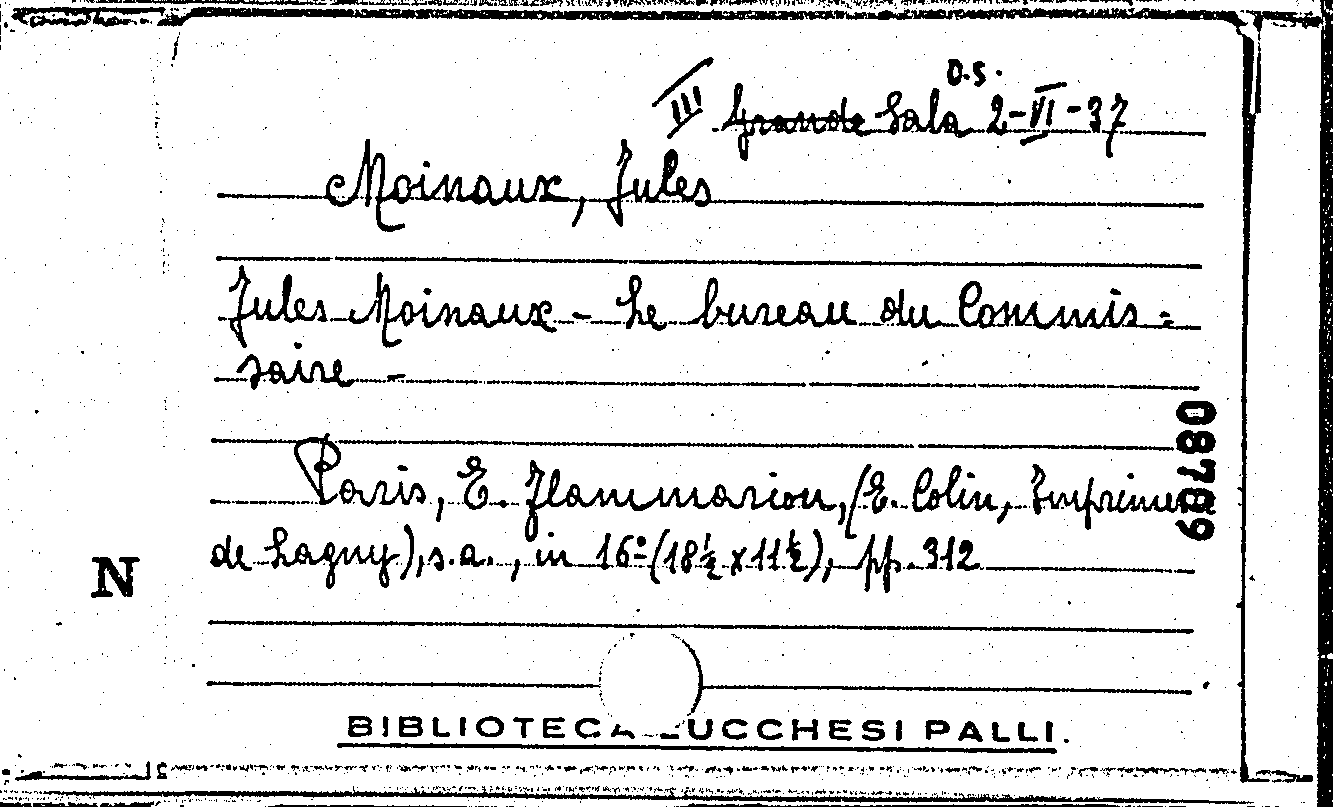 D.S.
III Grande Sala 2-VI-37
Moinaux, Jules
Jules Moinaux - Le bureau du Commis=
saire -
Paris, E. Flammarion, (E. Colin, Imprimer
de Lagny), s.a., in 16º (18½ x 11½), pp. 312
08789
N
BIBLIOTECA LUCCHESI PALLI.